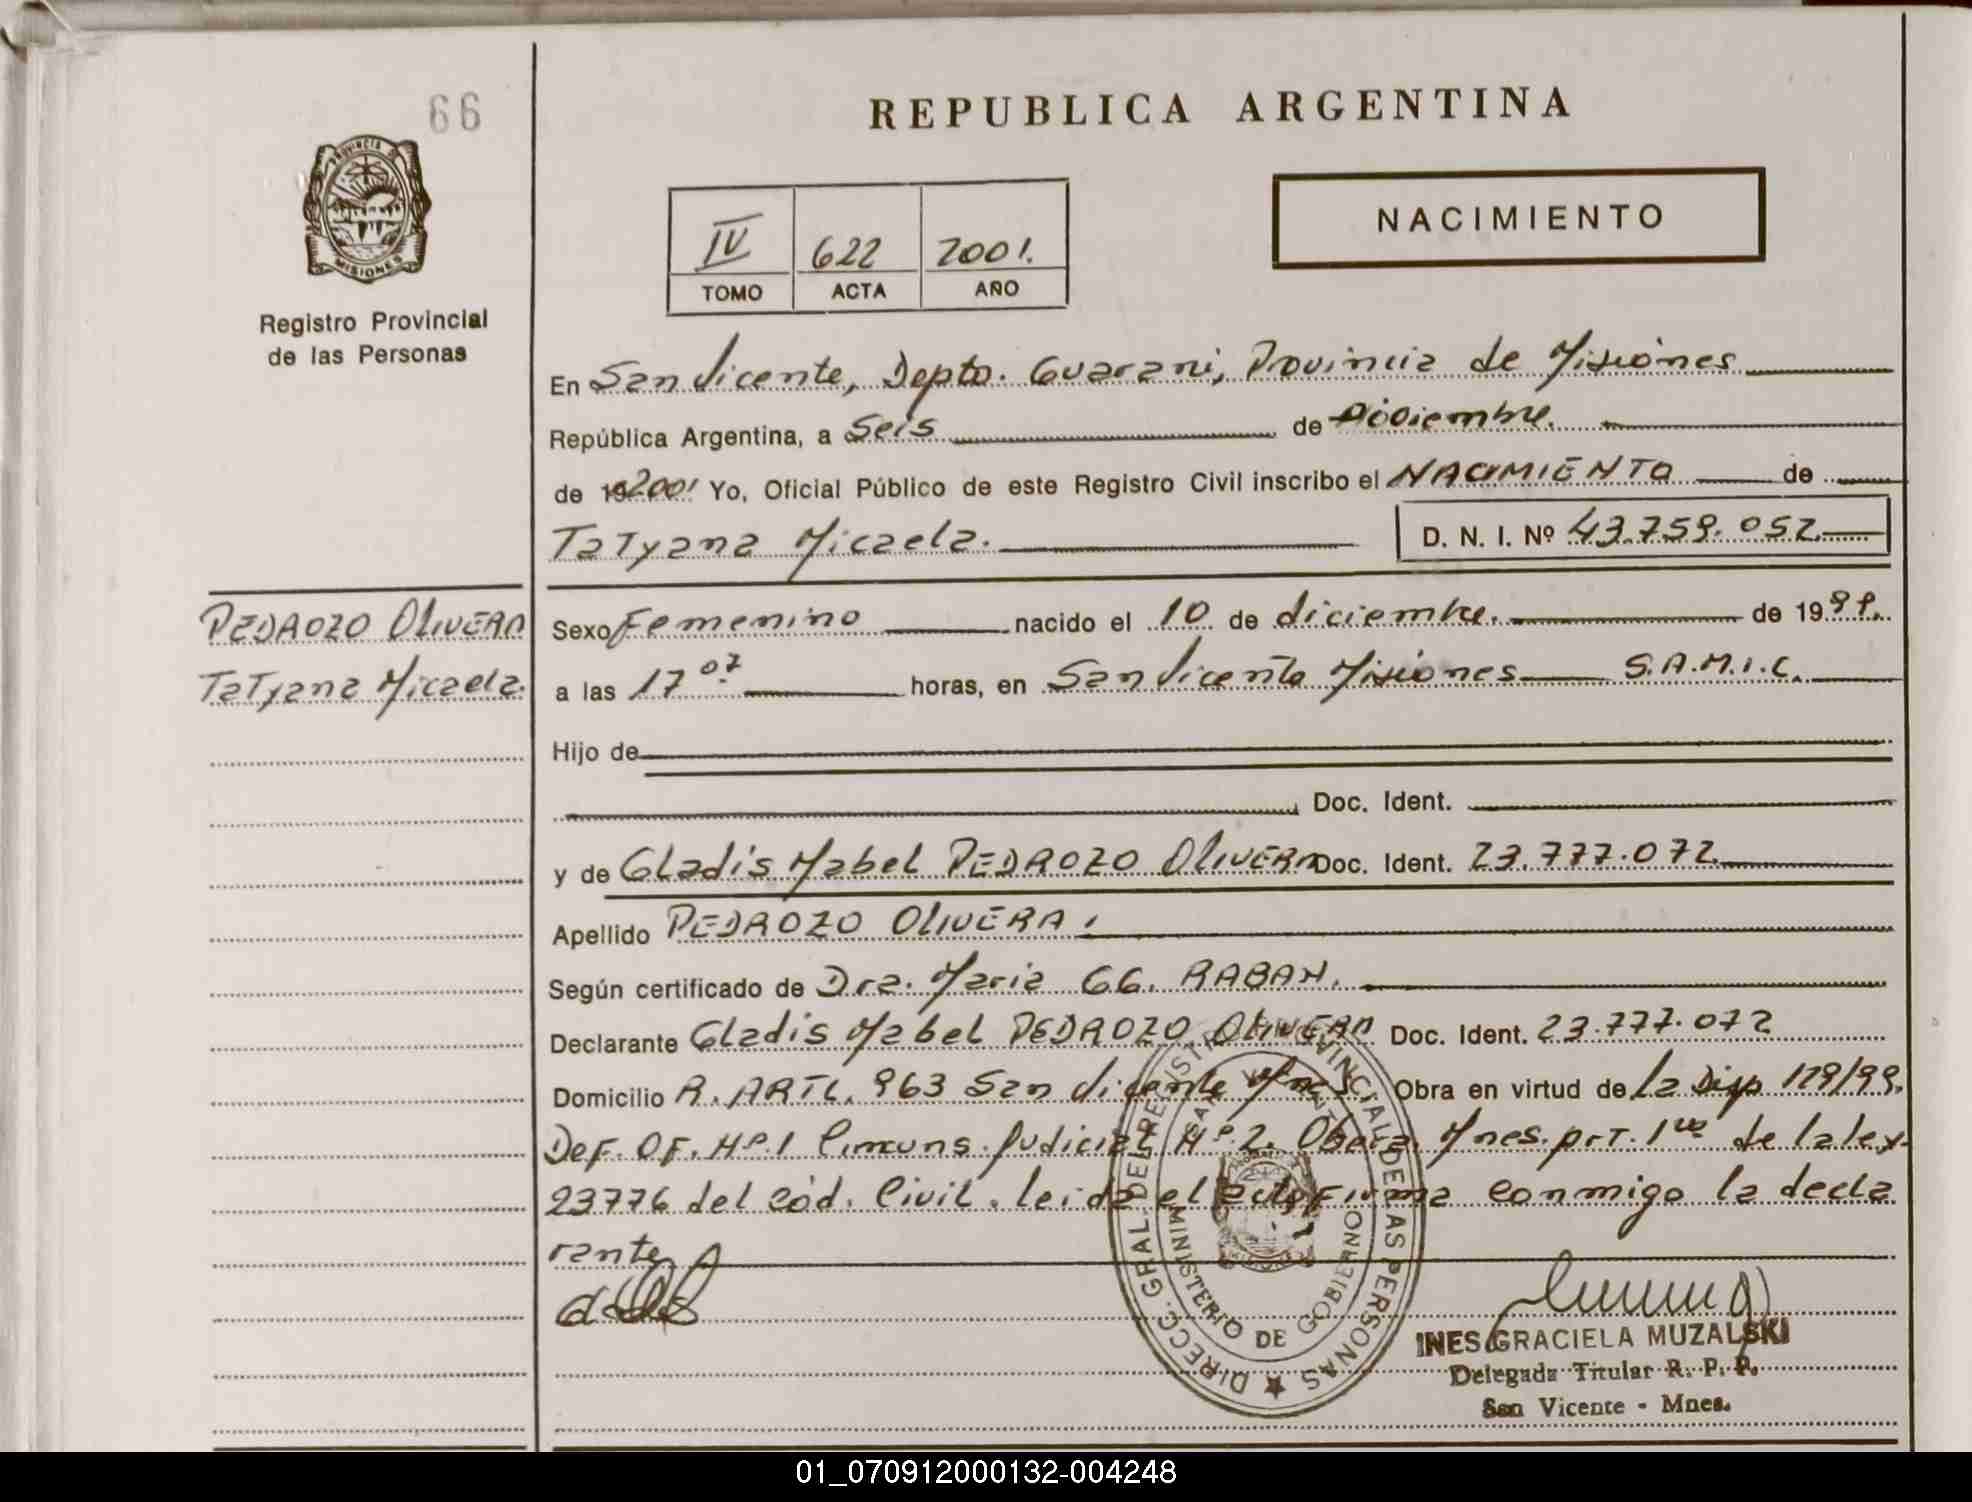 66
REPUBLICA ARGENTINA
PROVINCIA DE MISIONES
NACIMIENTO
IV 622 2001.
TOMO ACTA AÑO
Registro Provincial
de las Personas
En San Vicente, Depto. Guarani, Provincia de Misiones
República Argentina, a Seis de Diciembre.
de 19 2001 Yo, Oficial Público de este Registro Civil inscribo el NACIMIENTO de
Tatyana Micaela. D. N. I. Nº 43.759.052.
PEDROZO OLIVERA
Tatyana Micaela.
Sexo Femenino nacido el 10 de diciembre. de 1999.
a las 17 07 horas, en San Vicente Misiones S.A.M.I.C.
Hijo de
Doc. Ident.
y de Gladis Mabel PEDROZO OLIVERA Doc. Ident. 23.777.072.
Apellido PEDROZO OLIVERA.
Según certificado de Dra. Maria GG. RABAN.
Declarante Gladis Mabel PEDROZO OLIVERA Doc. Ident. 23.777.072
Domicilio R. ARTL. 963 San Vicente Mnes. Obra en virtud de la Disp 129/99.
Def. OF. Nº.1 Circuns. Judicial Nº.2. Obera. Mnes. prt. 1ro de la ley
23776 del Cód. Civil. leida el acta Firma conmigo la decla
rante
DIRECC. GRAL. DEL REGISTRO PROVINCIAL DE LAS PERSONAS
SAN VICENTE
MINISTERIO DE GOBIERNO
INES GRACIELA MUZALSKI
Delegada Titular R. P. P.
San Vicente - Mnes.
01_070912000132-004248